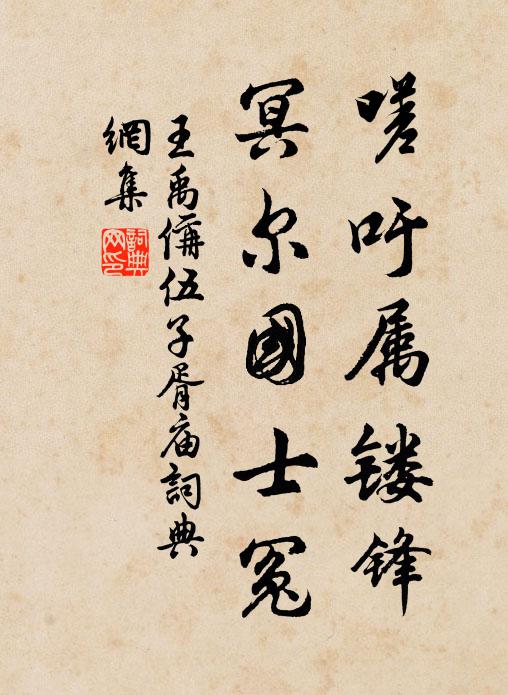 嗟吁属镂锋
冥尔國士冤
王禹偁伍子胥庙詞典
網集
詞典
网印